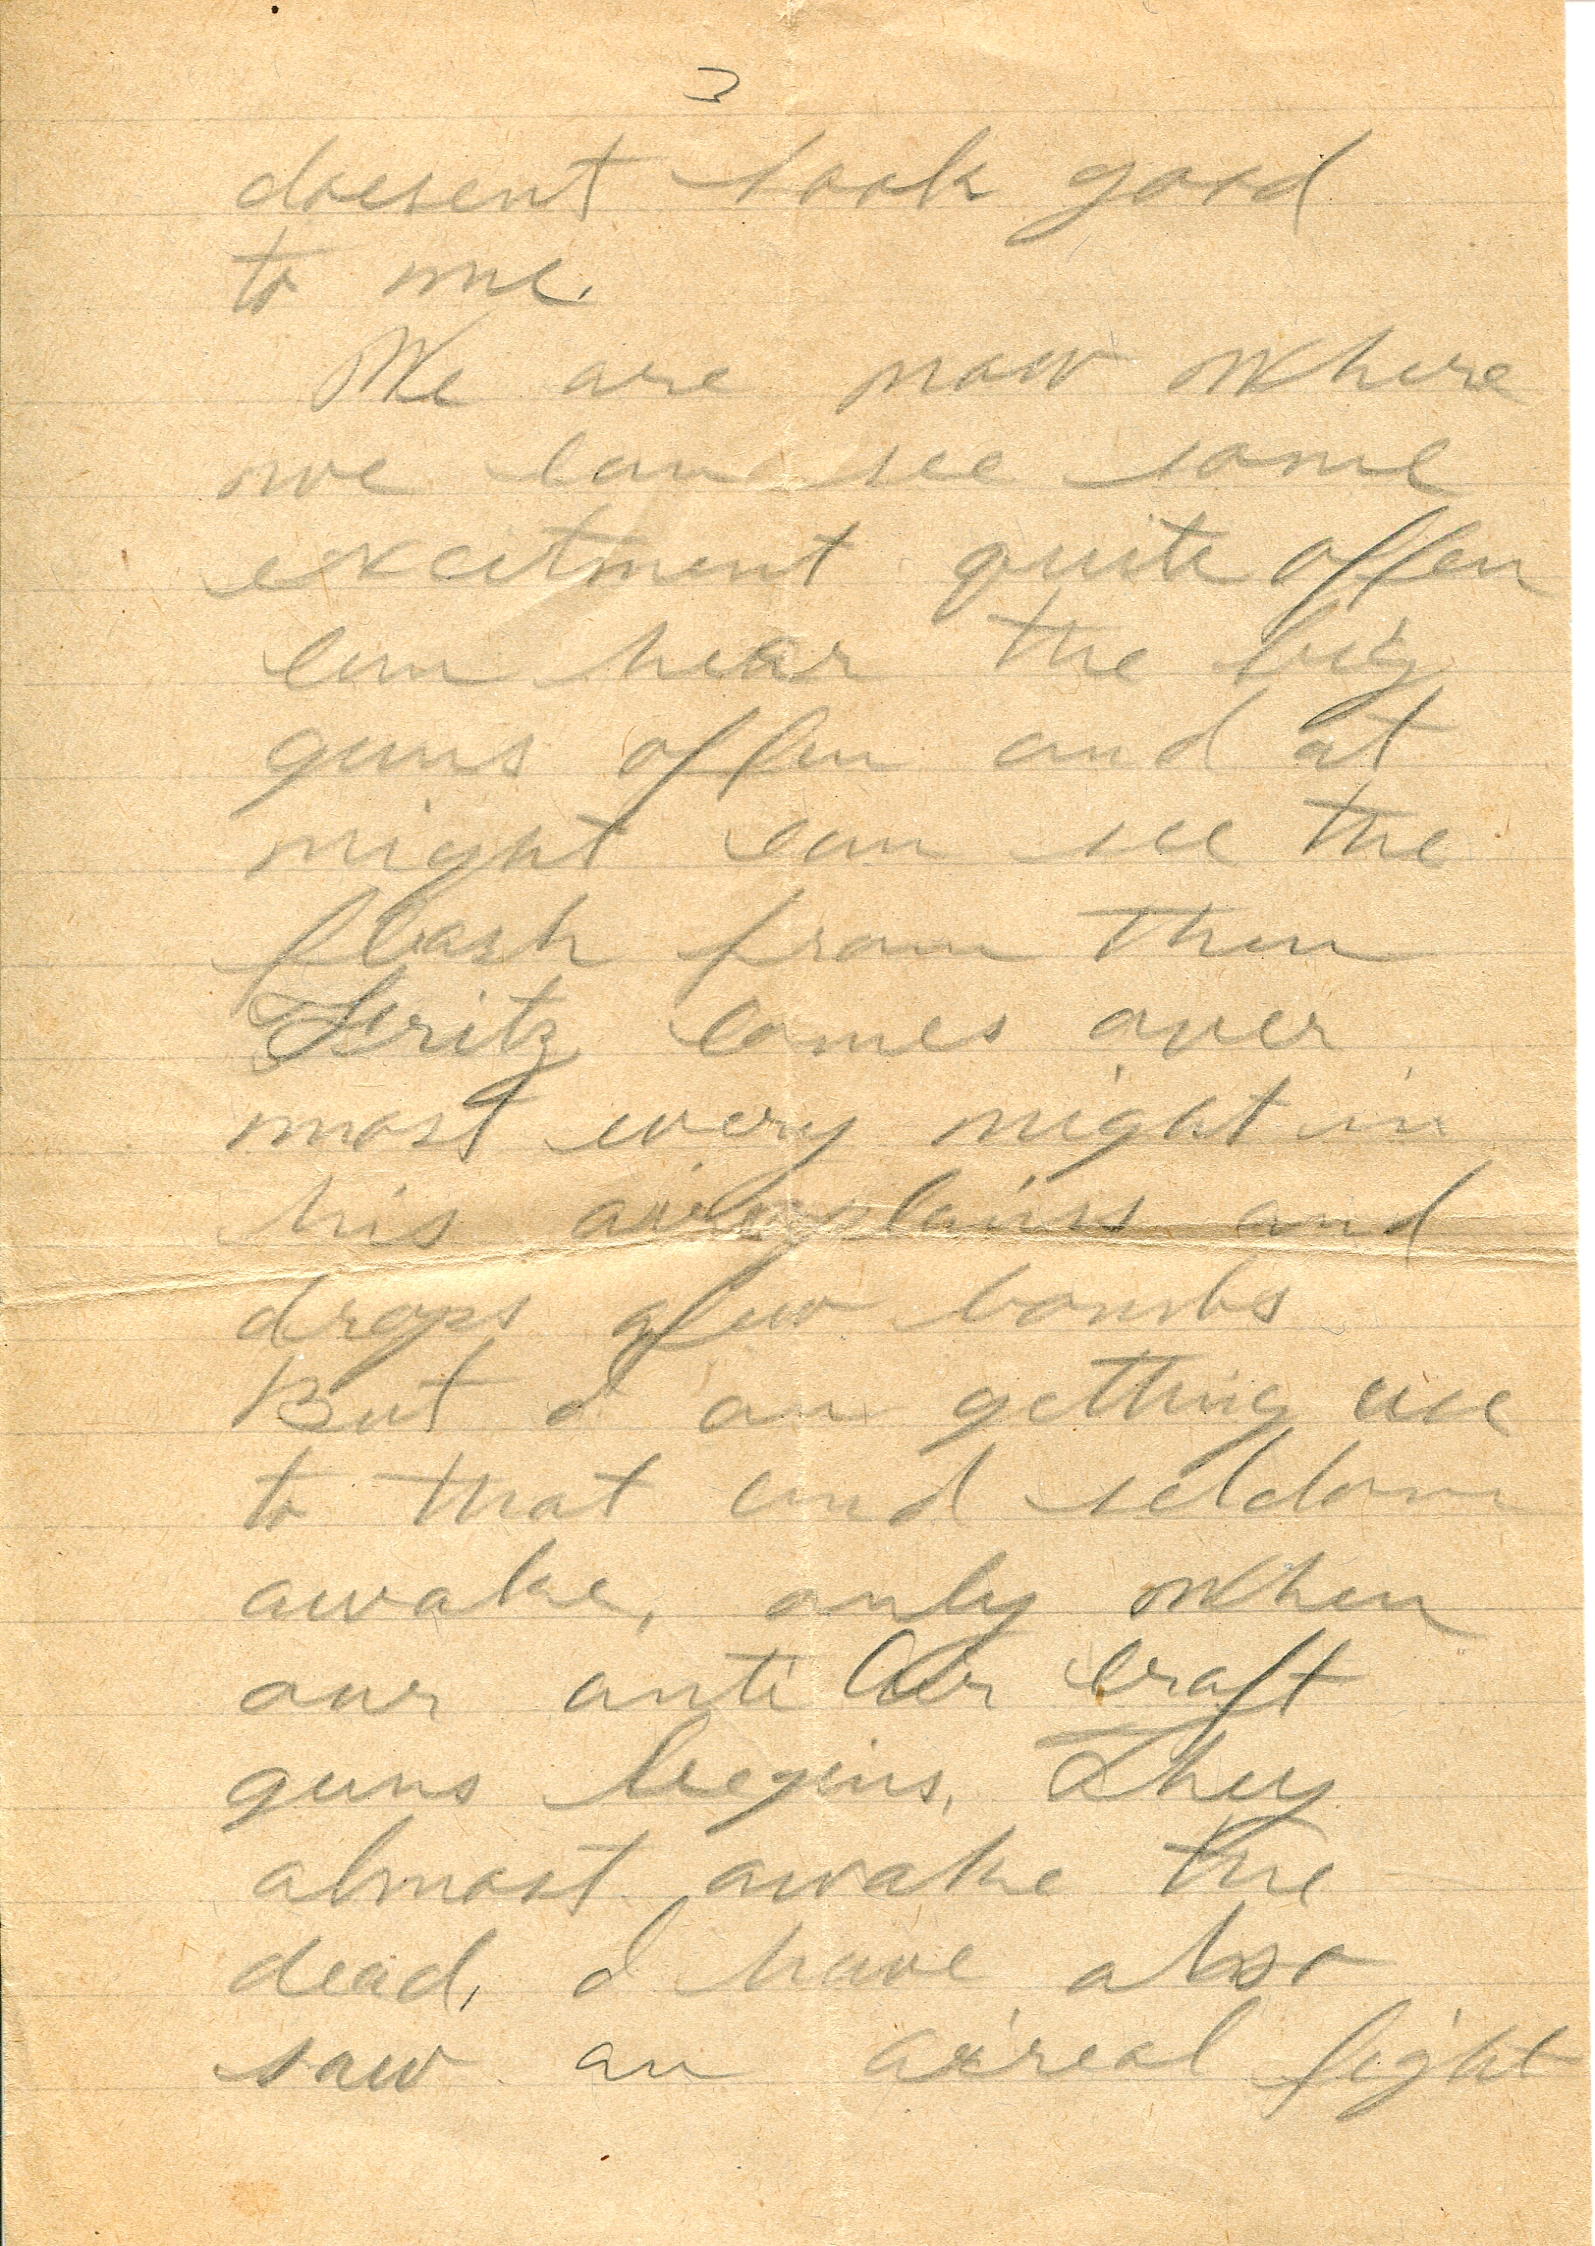 3
doesent look good
to me.
We are now where
we can see some
excitment quite offen
can hear the big
guns offen and at
night can see the
flash from them
Fritz comes over
most every night in
his airoplains and
drops afew bombs
But I am getting use
to that and seldom
awake, only when
our anti Air craft
guns begins. They
almost awake the
dead, I have also
saw an aireal fight